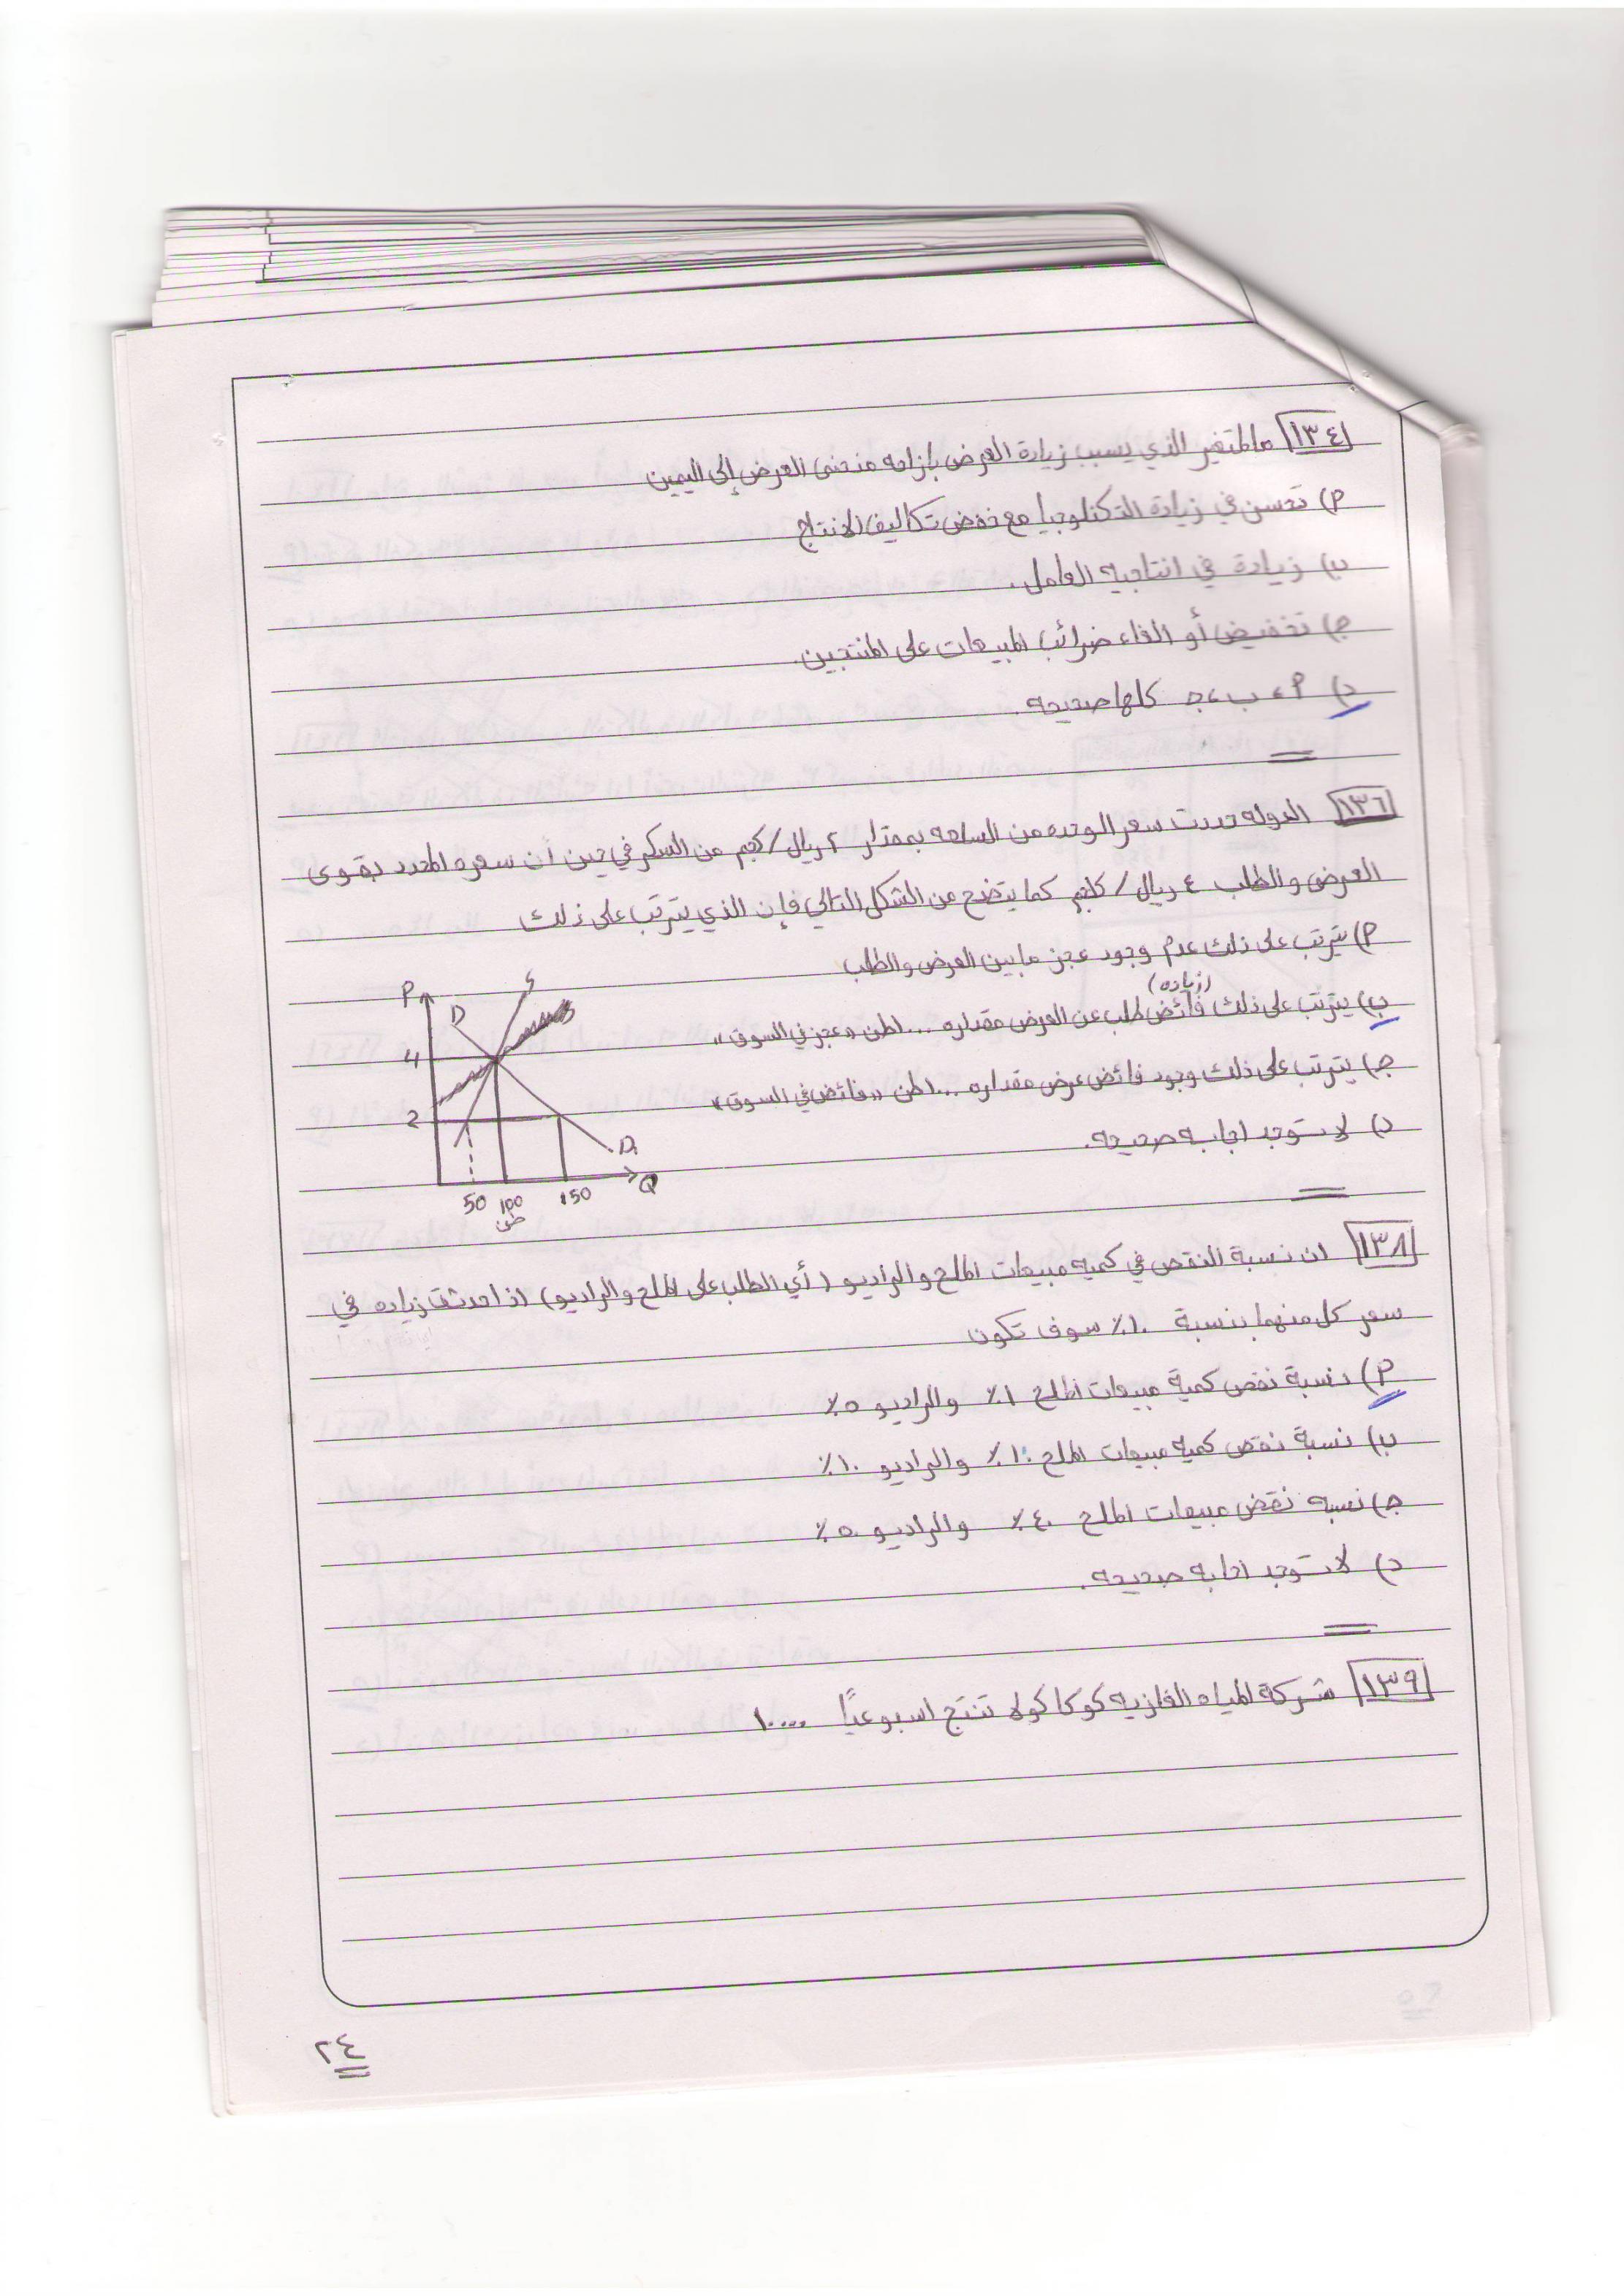 ١٣٤ ما المتغير الذي يسبب زيادة العرض بإزاحه منحنى العرض إلى اليمين
P) تحسن في زيادة التكنلوجيا مع خفض تكاليف الانتاج
ب) زيادة في انتاجيه العامل.
ج) تخفيض أو الغاء ضرائب المبيعات على المنتجين.
د) P، ب، ج كلها صحيحه.
١٣٦ الدوله حددت سعر الوحده من السلعه بمقدار ٢ ريال/كجم من السكر في حين أن سعره المحدد بقوى
العرض والطلب ٤ ريال/كلجم كما يتضح من الشكل التالي فإن الذي يترتب على ذلك
P) يترتب على ذلك عدم وجود عجز ما بين العرض والطلب
(زياده)
ب) يترتب على ذلك فائض طلب عن العرض مقداره ١٠٠ طن «عجز في السوق»
ج) يترتب على ذلك وجود فائض عرض مقداره ١٠٠ طن «فائض في السوق»
د) لا توجد اجابه صحيحه.
P
D
S
4
2
D
50 100 150 Q
طن
١٣٨ ان نسبة النقص في كميه مبيعات الملح والراديو (أي الطلب على الملح والراديو) اذا حدثت زياده في
سعر كل منهما بنسبة ١٠٪ سوف تكون
P) نسبة نقص كمية مبيعات الملح ١٪ والراديو ٥٪
ب) نسبة نقص كميه مبيعات الملح ١٠٪ والراديو ١٠٪
ج) نسبه نقص مبيعات الملح ٤٠٪ والراديو ٥٠٪
د) لا توجد اجابه صحيحه.
١٣٩ شركة المياه الغازيه كوكا كولا تنتج اسبوعيًا ١٠٠٠٠
٢٤